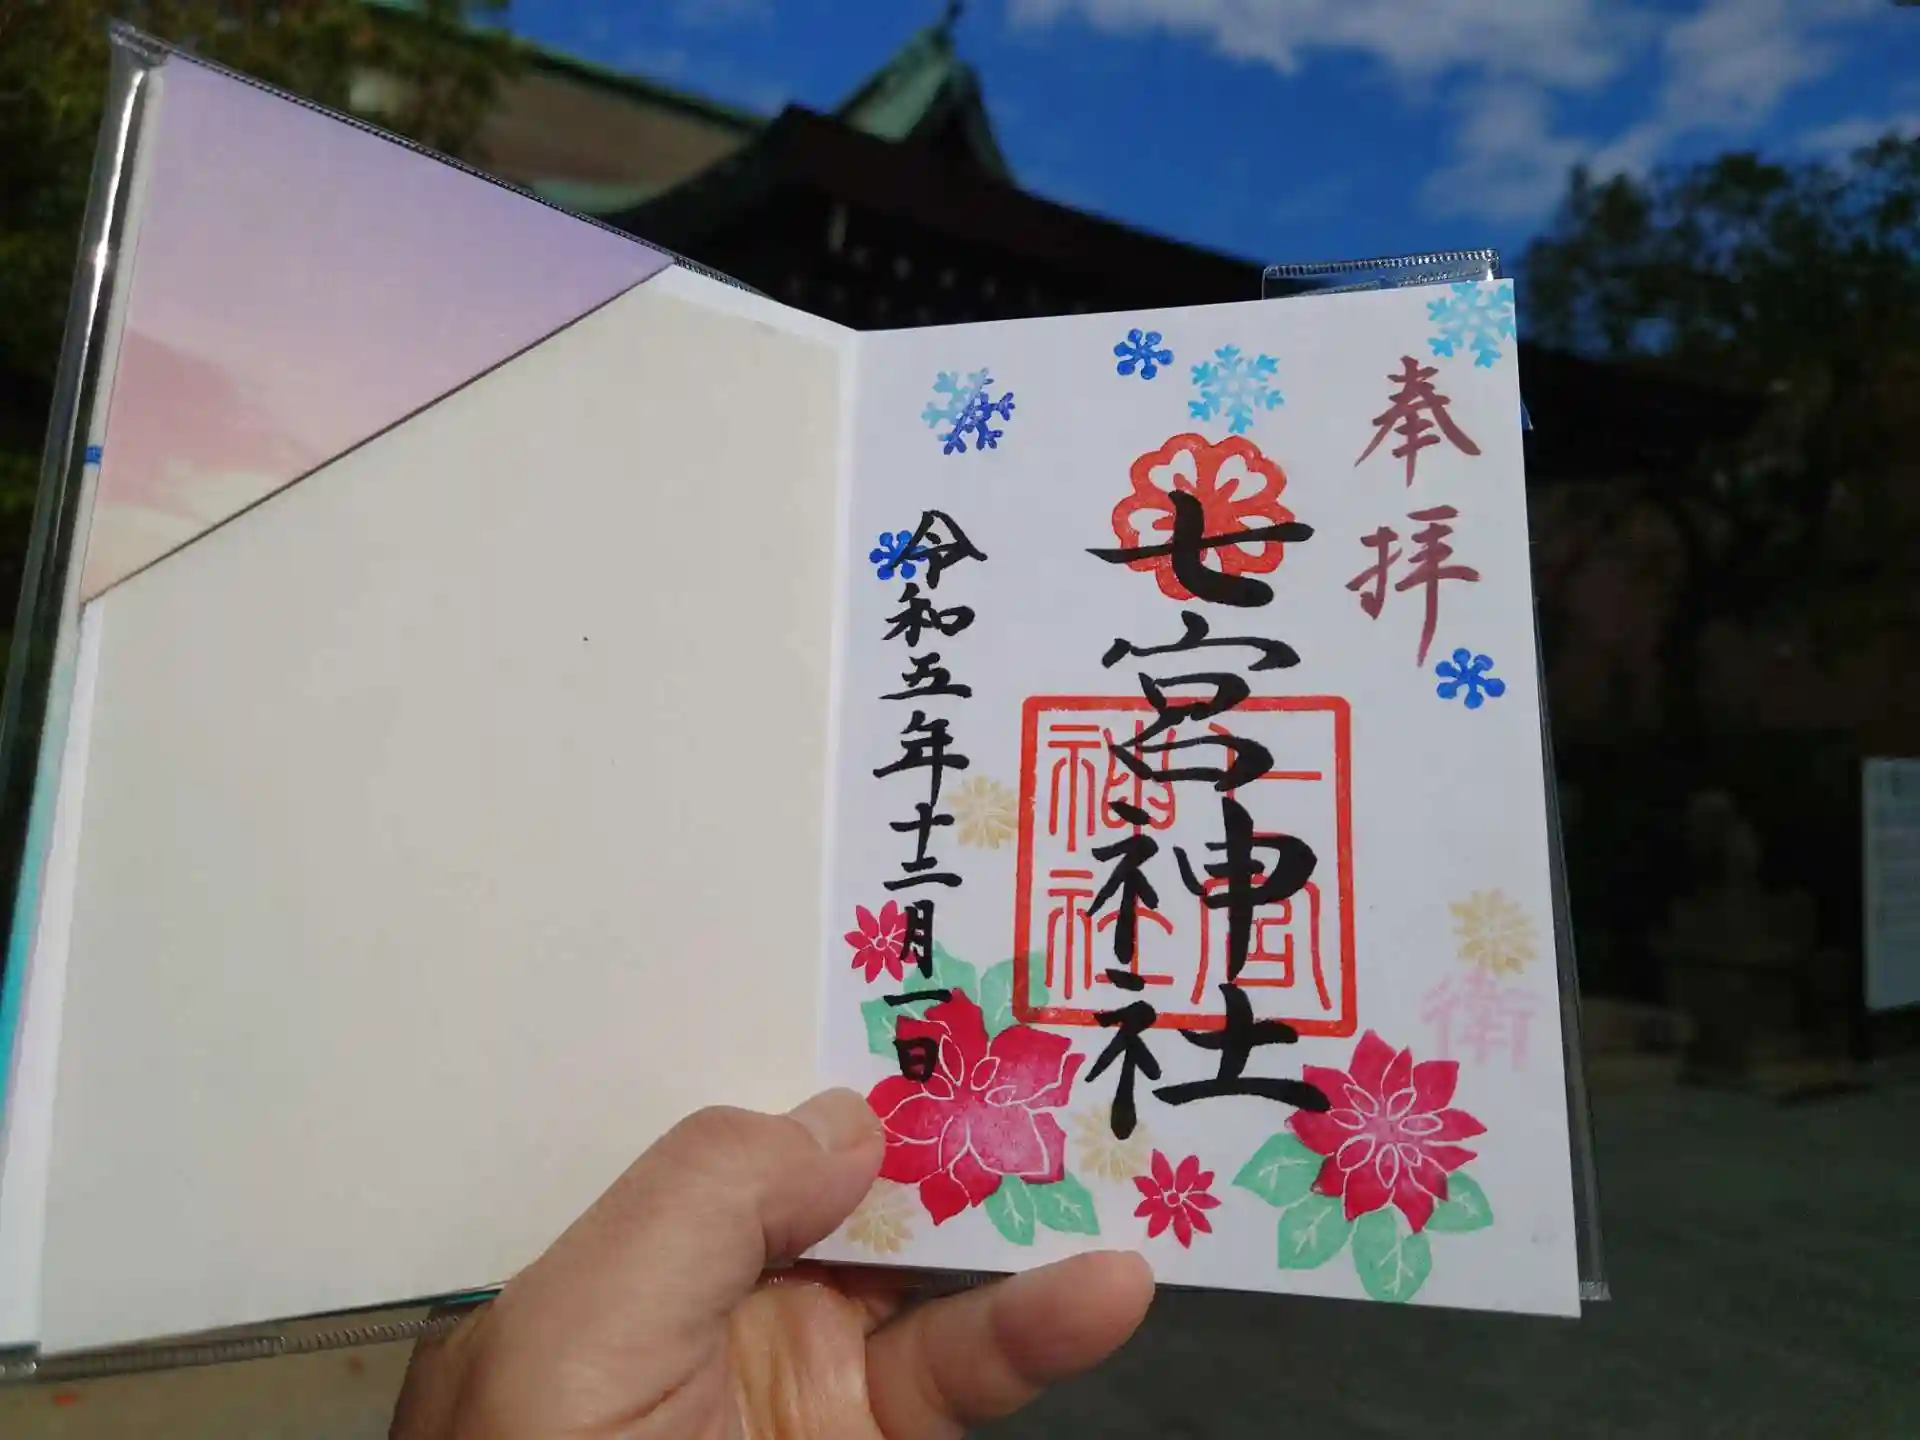 奉拝
七宮神社
七宮
神社
令和五年十二月一日
衛